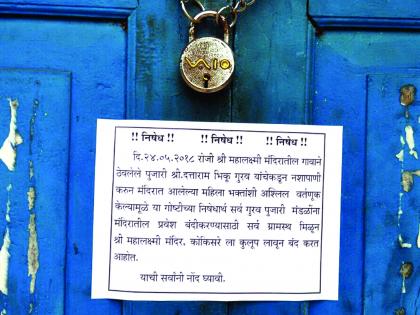 VAIO
!! निषेध !! !! निषेध !! !! निषेध !!
दि.२४.०५.२०१८ रोजी श्री महालक्ष्मी मंदिरातील गावाने
ठेवलेले पुजारी श्री.दत्ताराम भिकू गुरव यांचेकडून नशापाणी
करुन मंदिरात आलेल्या महिला भक्तांशी अश्लिल वर्तणूक
केल्यामूळे या गोष्टीच्या निषेधार्थ सर्व गुरव पुजारी मंडळींना
मंदिरातील प्रवेश बंदीकरण्यासाठी सर्व ग्रामस्थ मिळून
श्री महालक्ष्मी मंदिर, कोकिसरे ला कुलूप लावून बंद करत
आहोत.
याची सर्वांनी नोंद घ्यावी.